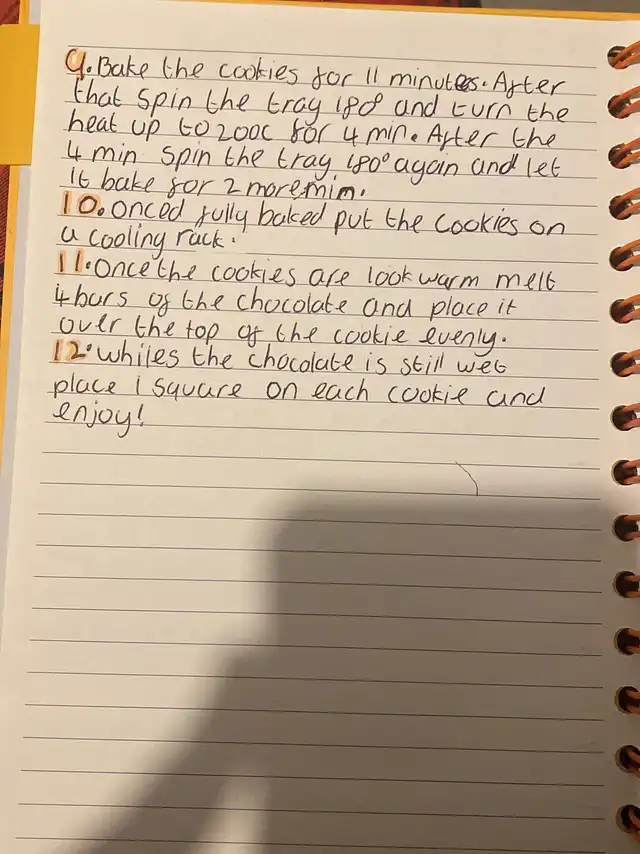 9. Bake the cookies for 11 minutes. After
that spin the tray 180° and turn the
heat up to 200c for 4 min. After the
4 min spin the tray 180° again and let
it bake for 2 more min.
10. Onced fully baked put the cookies on
a cooling rack.
11. Once the cookies are look warm melt
4 bars of the chocolate and place it
over the top of the cookie evenly.
12. Whiles the chocolate is still wet
place 1 square on each cookie and
enjoy!